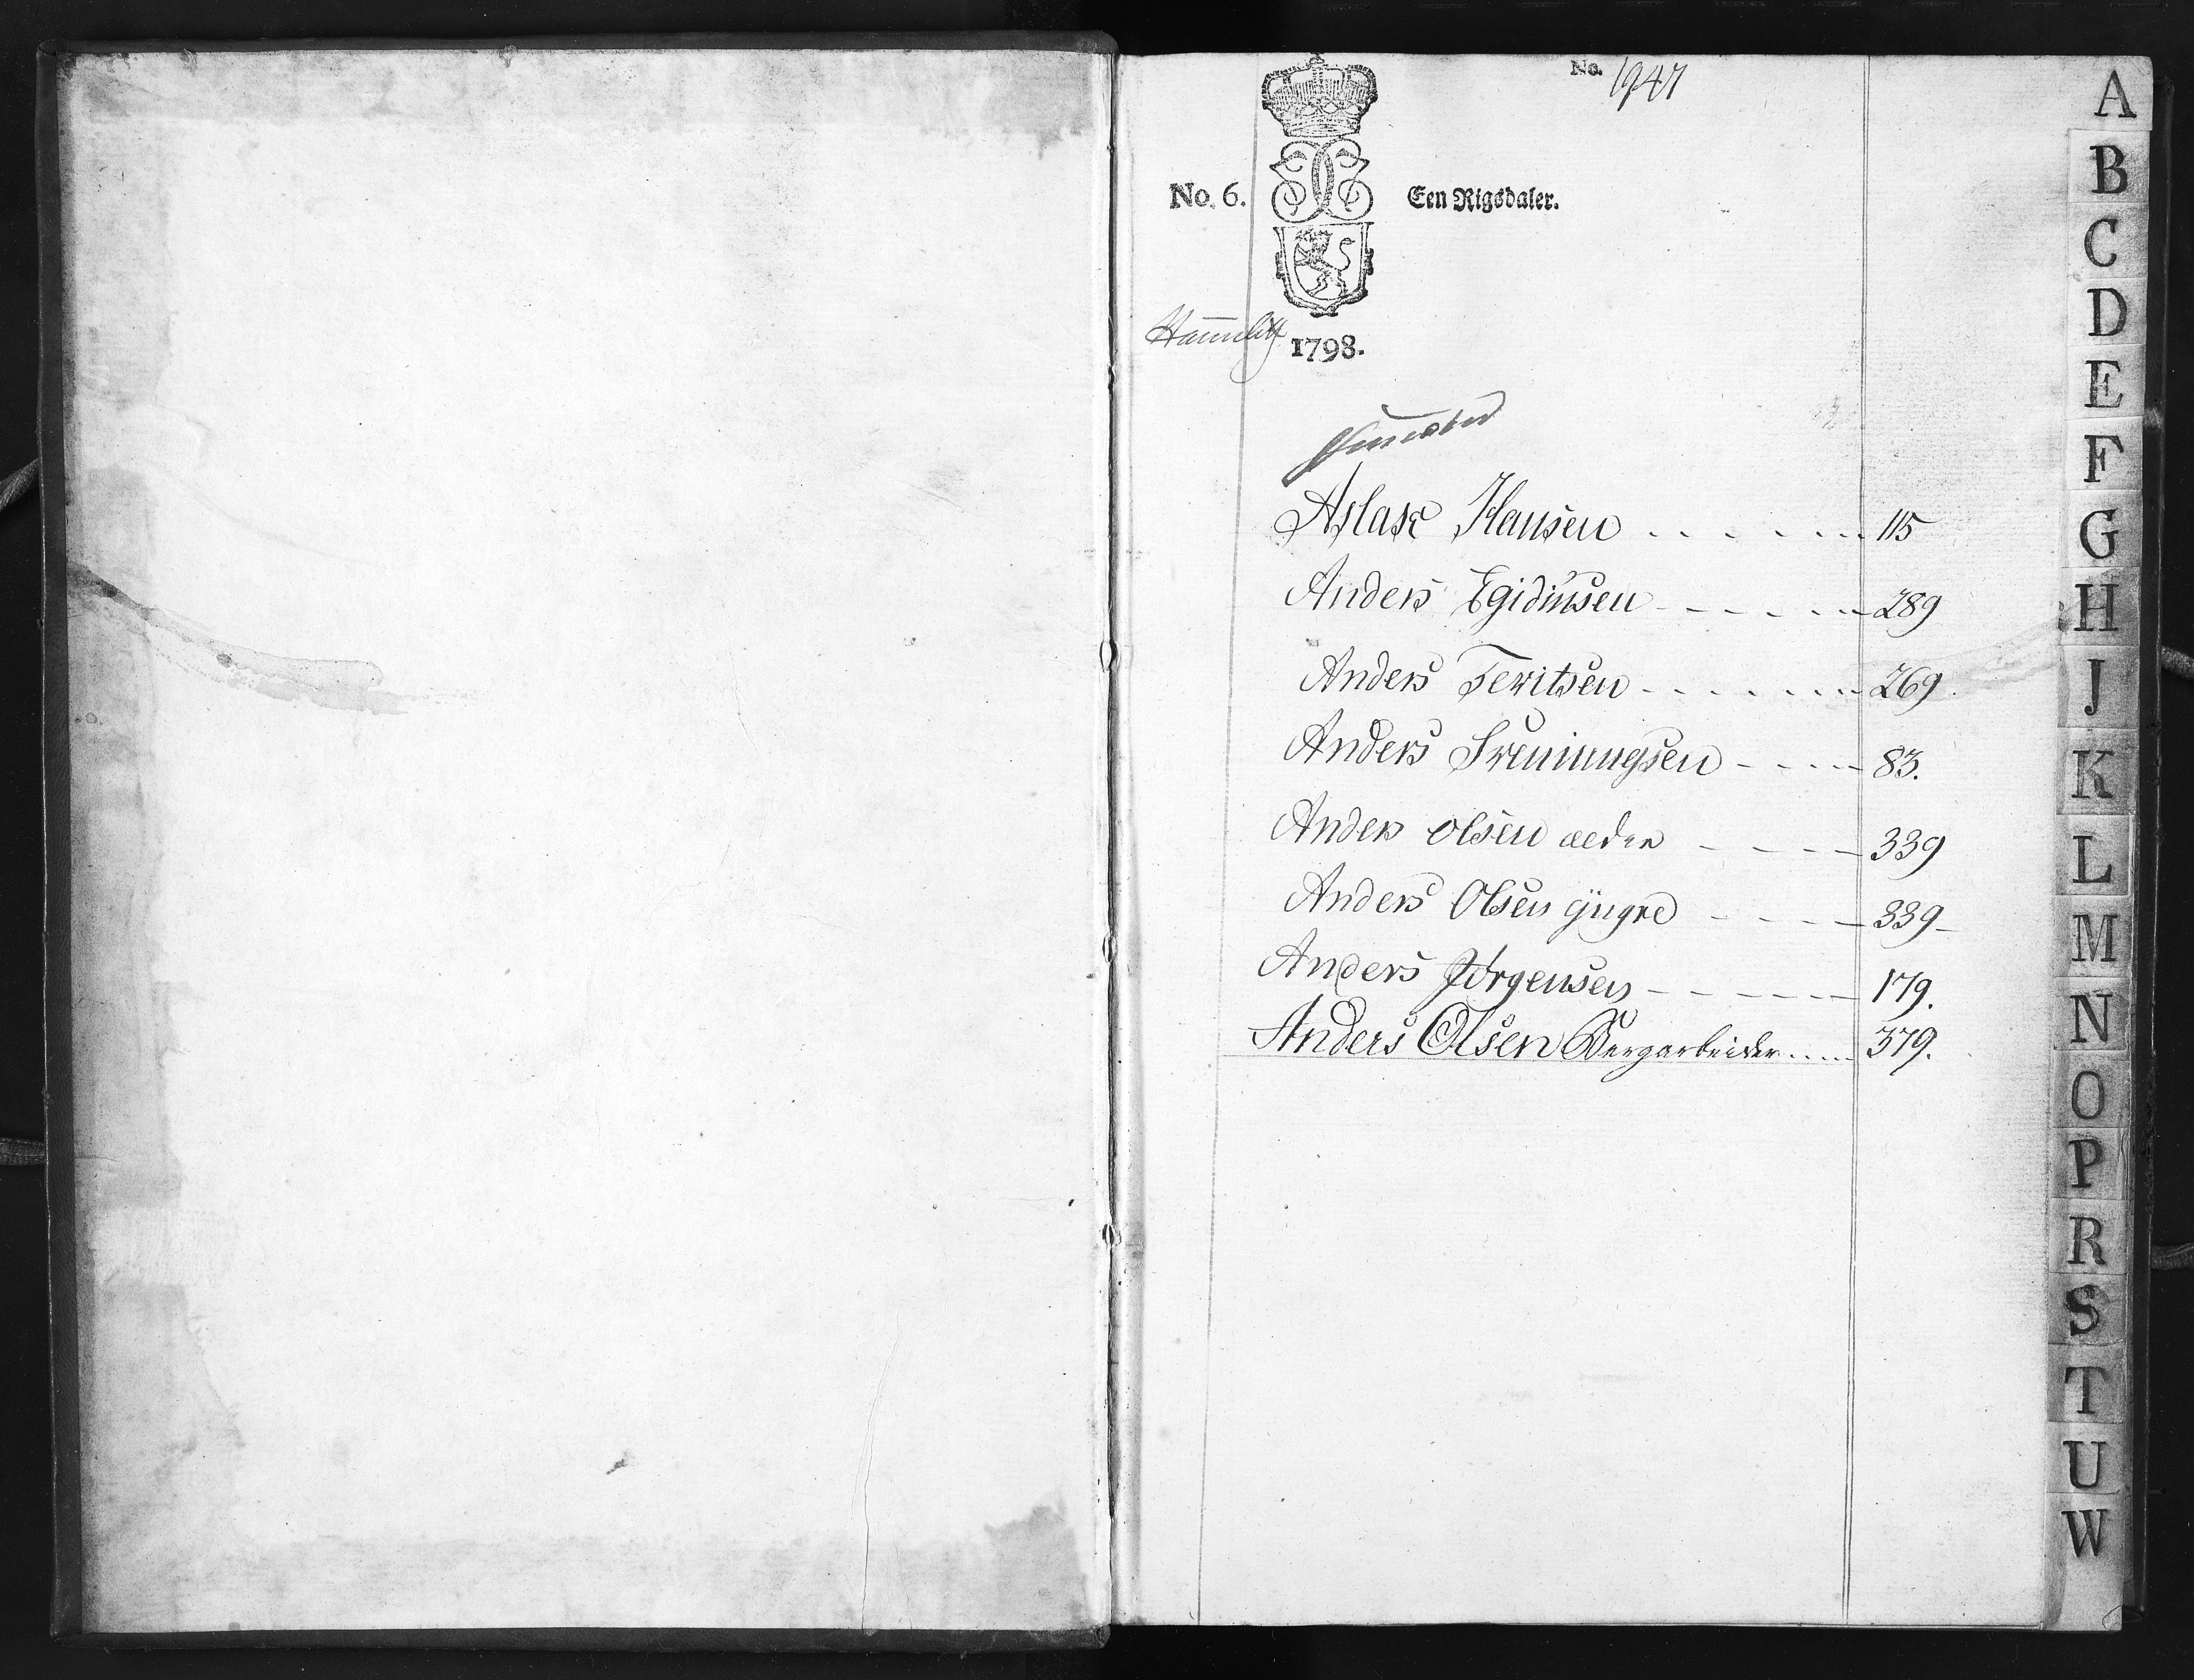 No. 1947
No. 6. Een Rigsdaler.
1798.
Aslak Hansen 115
Anders Egidiusen 289
Anders Teritsen 269.
Anders Svenningsen 83.
Anders Olsen ælder 339
Anders Olsen yngre 339
Anders Jörgensen 179.
Anders Olsen Bergarbeider 379.
A
B
C
D
E
F
G
H
J
K
L
M
N
O
P
R
S
T
U
W